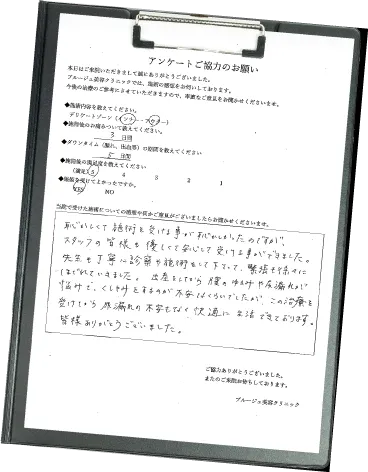 アンケートご協力のお願い
本日はご来院いただきまして誠にありがとうございました。
ブルージュ美容クリニックでは、施術の感想をお伺いしております。
今後の治療のご参考にさせていただきますので、率直なご意見をお聞かせくださいませ。
◆施術内容を教えてください。
デリケートゾーン(インナー・アウター)
◆施術後のお痛みついて教えてください。
3 日間
◆ダウンタイム(腫れ、出血等)の期間を教えてください
5 日間
◆施術後の満足度を教えてください
(満足) 5 4 3 2 1
◆施術を受けてよかったですか。
YES NO
当院で受けた施術についての感想や何かご意見がございましたらお聞かせくださいませ。
恥ずかしくて施術を受ける事が恥ずかしかったのですが、
スタッフの皆様も優しくて安心して受ける事ができました。
先生も丁寧に診察や施術をして下さって、緊張も徐々に
ほぐれていきました。出産をしてから膣のゆるみや尿漏れが
悩みで、くしゃみをするのが不安なくらいでしたが、この治療を
受けてから尿漏れの不安もなく快適に生活できております。
皆様ありがとうございました。
ご協力ありがとうございました。
またのご来院お待ちしております。
ブルージュ美容クリニック